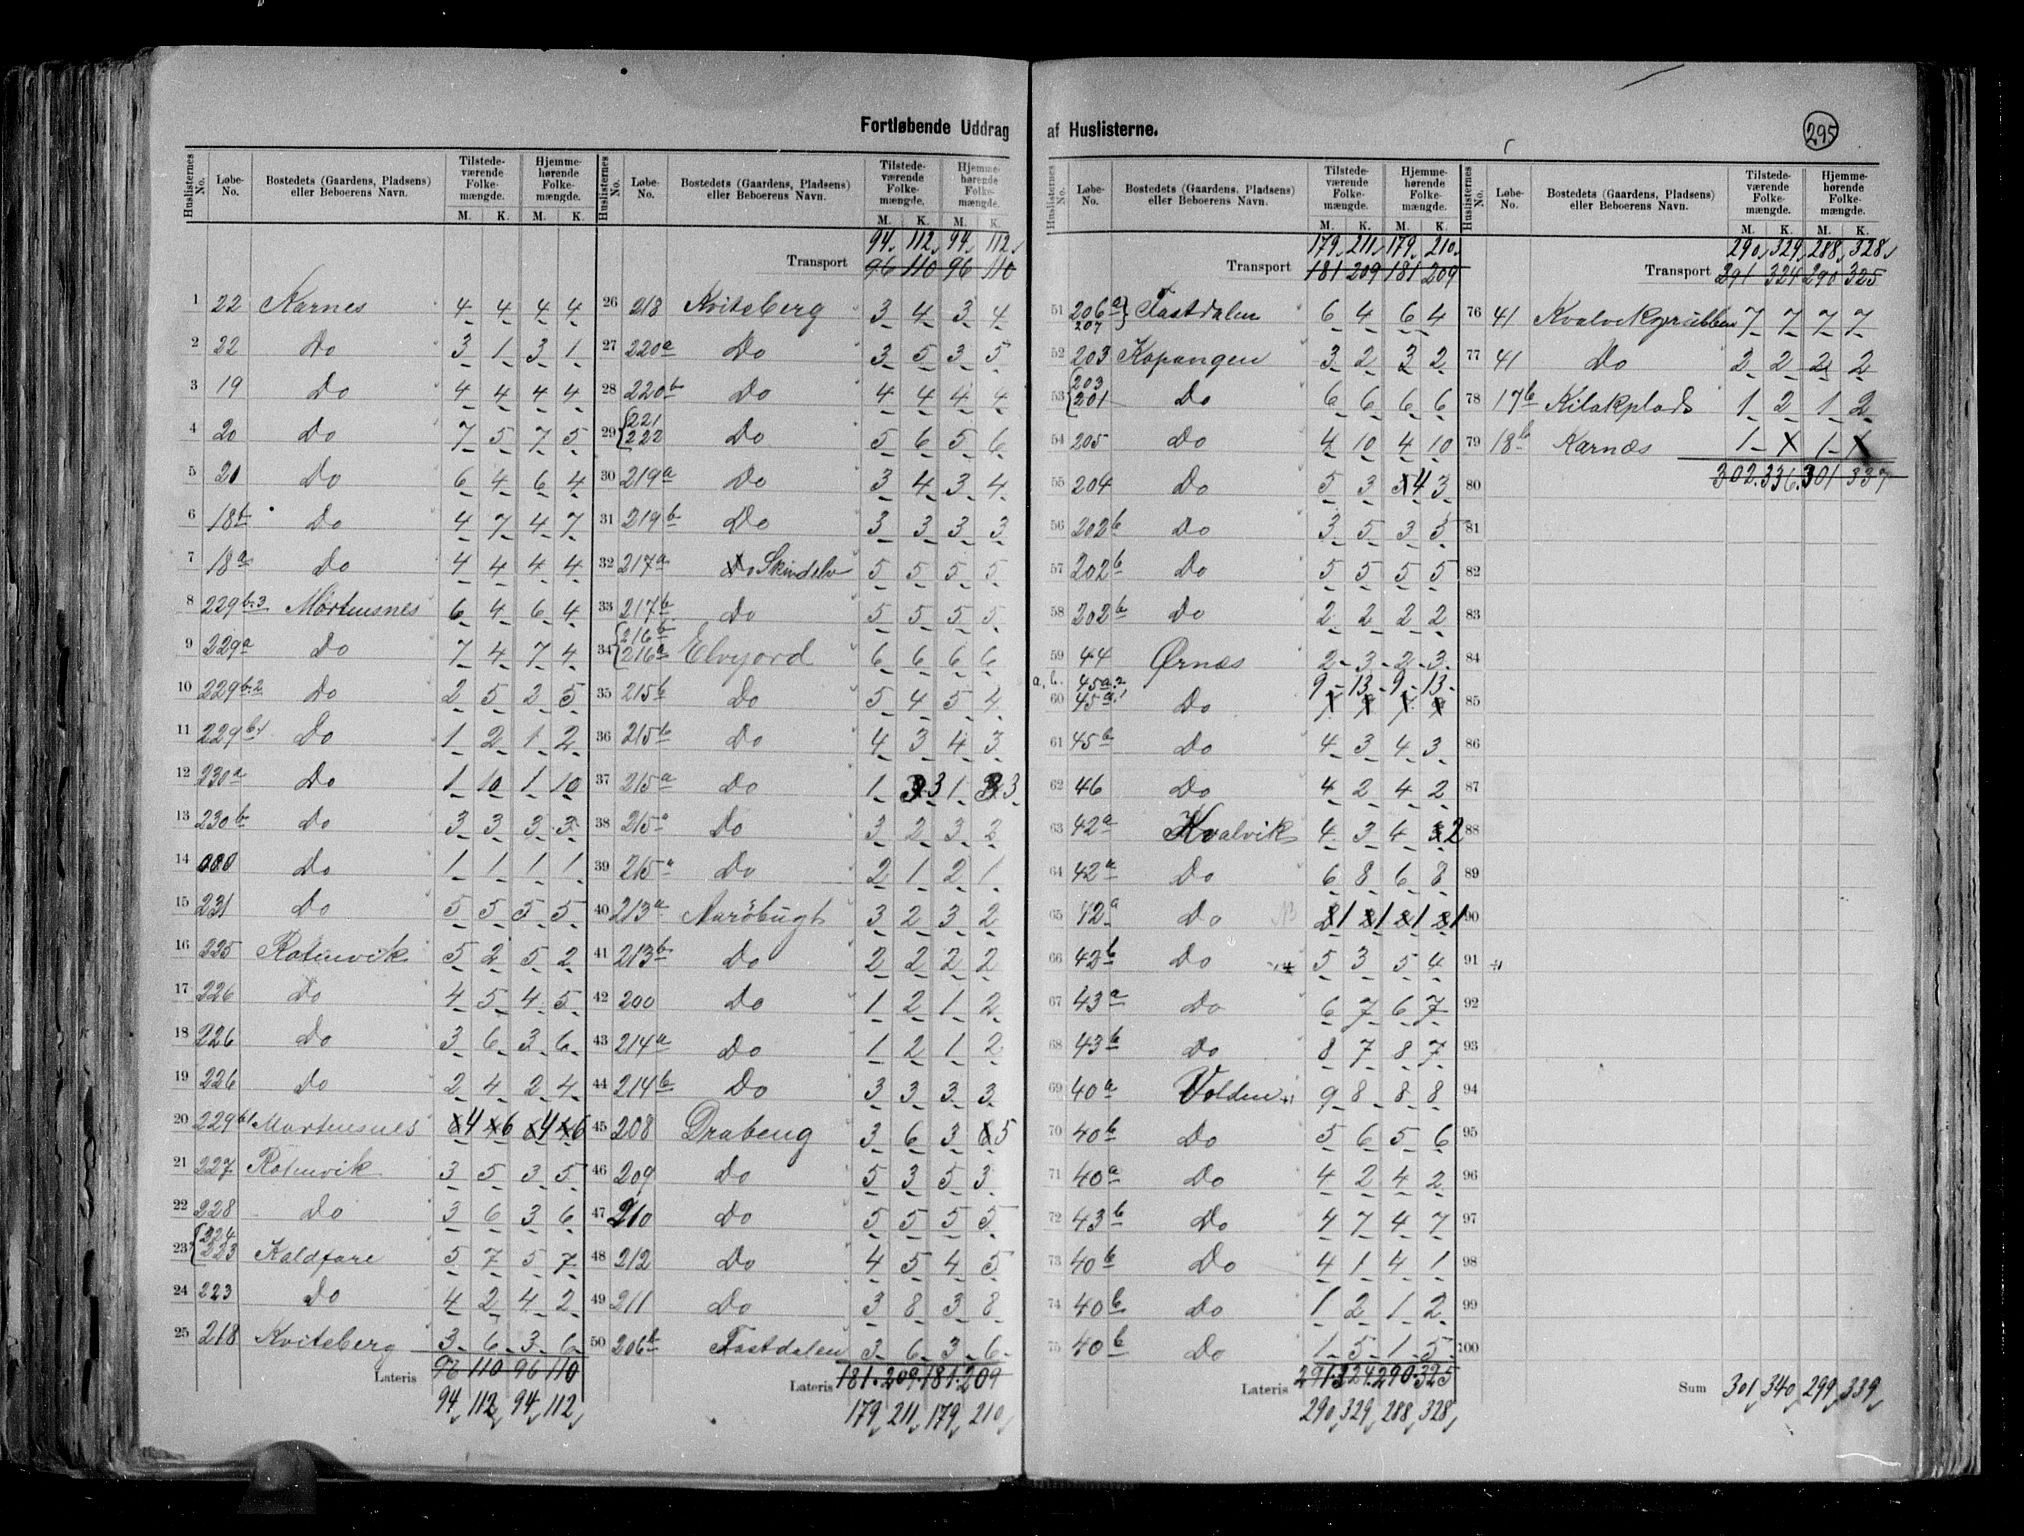 Fortløbende Uddrag af Huslisterne.
295
Huslisternes No. Løbe-No. Bostedets (Gaardens, Pladsens) eller Beboerens Navn. Tilstedeværende Folkemængde. M. K. Hjemmehørende Folkemængde. M. K.
1 22 Karnes 4 4 4 4
2 22 Do 3 1 3 1
3 19 Do 4 4 4 4
4 20 Do 7 5 7 5
5 21 Do 6 4 6 4
6 18b Do 4 7 4 7
7 18a Do 4 4 4 4
8 229b.3 Mortensnes 6 4 6 4
9 229a Do 7 4 7 4
10 229b.2 Do 2 5 2 5
11 229b1 Do 1 2 1 2
12 230a Do 1 10 1 10
13 230b Do 3 3 3 3
14 Do 1 1 1 1
15 231 Do 5 5 5 5
16 225 Rotenvik 5 2 5 2
17 226 Do 4 5 4 5
18 226 Do 3 6 3 6
19 226 Do 2 4 2 4
20 229b1 Mortensnes 4 6 4 6
21 227 Rotenvik 3 5 3 5
22 228 Do 3 6 3 6
23 224 223 Kaldfare 5 7 5 7
24 223 Do 4 2 4 2
25 218 Kviteberg 3 6 3 6
Lateris 96 110 96 110
94 112 94 112
Huslisternes No. Løbe-No. Bostedets (Gaardens, Pladsens) eller Beboerens Navn. Tilstedeværende Folkemængde. M. K. Hjemmehørende Folkemængde. M. K.
94 112 94 112
Transport 96 110 96 110
26 218 Kviteberg 3 4 3 4
27 220a Do 3 5 3 5
28 220b Do 4 4 4 4
29 221 222 Do 5 6 5 6
30 219a Do 3 4 3 4
31 219b Do 3 3 3 3
32 217a Do Skindelv 5 5 5 5
33 217b Do 5 5 5 5
34 216b 216a Elvejord 6 6 6 6
35 215b Do 5 4 5 4
36 215b Do 4 3 4 3
37 215a Do 1 3 1 3
38 215a Do 3 2 3 2
39 215a Do 2 1 2 1
40 213a Aarøbugt 3 2 3 2
41 213b Do 2 2 2 2
42 200 Do 1 2 1 2
43 214a Do 1 2 1 2
44 214b Do 3 3 3 3
45 208 Drabeng 3 6 3 6 5
46 209 Do 5 3 5 3
47 210 Do 5 5 5 5
48 212 Do 4 5 4 5
49 211 Do 3 8 3 8
50 206b Fastdalen 3 6 3 6
Lateris 181 209 181 209
179 211 179 210
Huslisternes No. Løbe-No. Bostedets (Gaardens, Pladsens) eller Beboerens Navn. Tilstedeværende Folkemængde. M. K. Hjemmehørende Folkemængde. M. K.
179 211 179 210
Transport 181 209 181 209
51 206a 207 Fastdalen 6 4 6 4
52 203 Kopangen 3 2 3 2
53 203 201 Do 6 6 6 6
54 205 Do 4 10 4 10
55 204 Do 5 3 5 4 3
56 202b Do 3 5 3 5
57 202b Do 5 5 5 5
58 202b Do 2 2 2 2
59 44 Ørnæs 2 3 2 3
a, b. 45a.2 9 13 9 13
60 45a.1 Do
61 45b Do 4 3 4 3
62 46 Do 4 2 4 2
63 42a Kvalvik 4 3 4 3 2
64 42a Do 6 8 6 8
65 42a Do 2 1 2 1 2 1 2 1
66 42b Do 5 3 5 4
67 43a Do 6 7 6 7
68 43b Do 8 7 8 7
69 40a Volden 9 8 8 8
70 40b Do 5 6 5 6
71 40a Do 4 2 4 2
72 43b Do 4 7 4 7
73 40b Do 4 1 4 1
74 40b Do 1 2 1 2
75 40b Do 1 5 1 5
Lateris 291 324 290 325
290 329 288 328
Huslisternes No. Løbe-No. Bostedets (Gaardens, Pladsens) eller Beboerens Navn. Tilstedeværende Folkemængde. M. K. Hjemmehørende Folkemængde. M. K.
290 329 288 328
Transport 291 324 290 325
76 41 Kvalvikgrubben 7 7 7 7
77 41 Do 2 2 2 2
78 17b Kilakplads 1 2 1 2
79 18b Karnæs 1 x 1 1
302 336 301 337
80
81
82
83
84
85
86
87
88
89
90
91
92
93
94
95
96
97
98
99
100
Sum 301 340 299 339